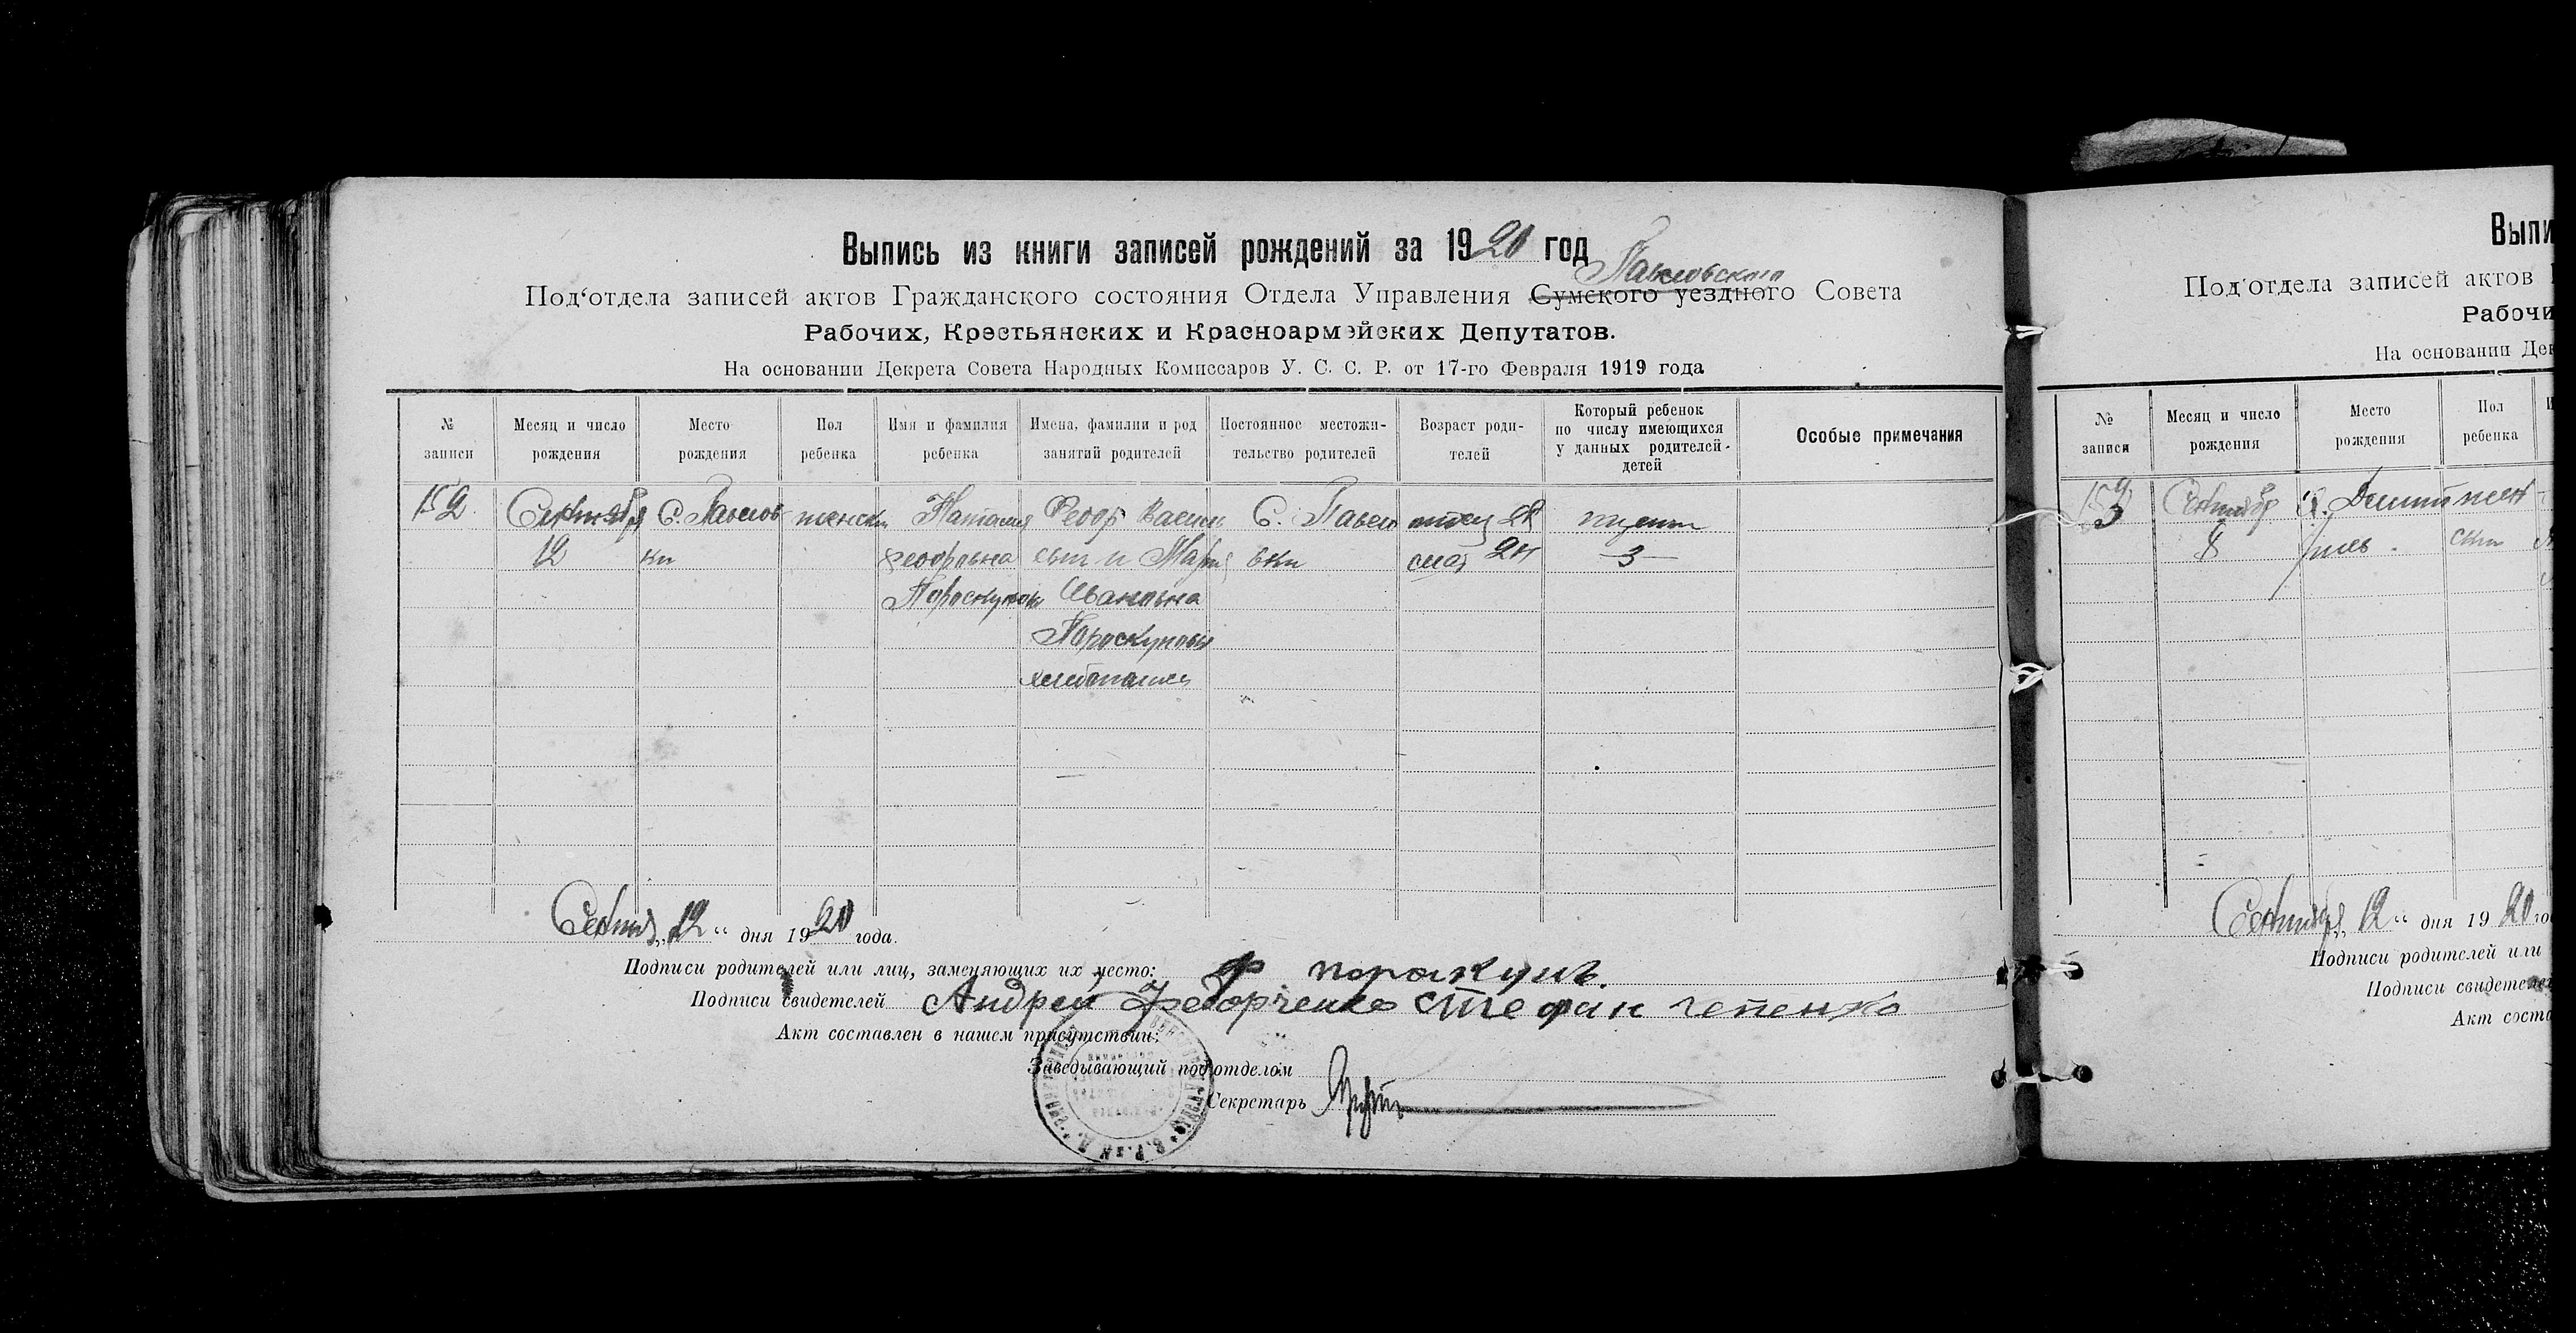 Выпись из книги записей рождений за 1920 год
Павловского
Под'отдела записей актов Гражданского состояния Отдела Управления Сумского уездного Совета
Рабочих, Крестьянских и Красноармейских Депутатов.
На основании Декрета Совета Народных Комиссаров У. С. С. Р. от 17-го Февраля 1919 года
№ записи
Месяц и число рождения
Место рождения
Пол ребенка
Имя и фамилия ребенка
Имена, фамилии и род занятий родителей
Постоянное местожительство родителей
Возраст родителей
Который ребенок по числу имеющихся у данных родителей детей
Особые примечания
152 Сентября С. Павлов женски Наталия Феодр Васил С. Павло отец
12 ки Феодровна и Мария вки мат 24 3
Ивановна
Проскуновы
хлебопашец
12 " дня 1920 года.
Подписи родителей или лиц, заменяющих их место: Ф
Подписи свидетелей Андрей Федорченко Стефан чепенко
Акт составлен в нашем присутствии:
Заведывающий под'отделом
Секретарь
Выпи
Под'отдела записей актов
Рабочи
На основании Дек
№ записи
Месяц и число рождения
Место рождения
Пол ребенка
153
8
Сентября 12 " дня 1920 го
Подписи родителей или
Подписи свидетелей
Акт соста